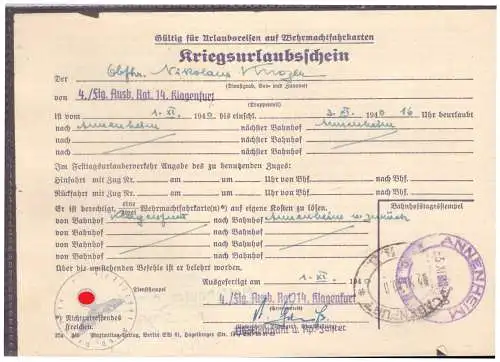 Gültig für Urlaubsreisen auf Wehrmachtfahrkarten
Kriegsurlaubsschein
Der Obfhr. Nikolaus
(Dienstgrad, Vor- und Zuname)
von 4./Stg. Ausb. Rgt. 14. Klagenfurt
(Truppenteil)
ist vom 1. XI. 1940 bis einschl. 3. XI. 1940 16 Uhr beurlaubt
nach Annenheim nächster Bahnhof Annenheim
nach nächster Bahnhof
nach nächster Bahnhof
Im Festtagsurlauberverkehr Angabe des zu benutzenden Zuges:
Hinfahrt mit Zug Nr. am um Uhr von Bhf.
Rückfahrt mit Zug Nr. am um Uhr von Bhf.
Er ist berechtigt, eine zwei Wehrmachtfahrkarte(n)*) auf eigene Kosten zu lösen.
Bahnhofstagesstempel
von Bahnhof Klagenfurt nach Bahnhof Annenheim u. zurück
von Bahnhof nach Bahnhof
von Bahnhof nach Bahnhof
Über die umstehenden Befehle ist er belehrt worden.
ANNENHEIM
Ausgefertigt am 1. XI. 1940
Dienststempel
4./Stg. Ausb. Rgt. 14. Klagenfurt
*) Nichtzutreffendes streichen.